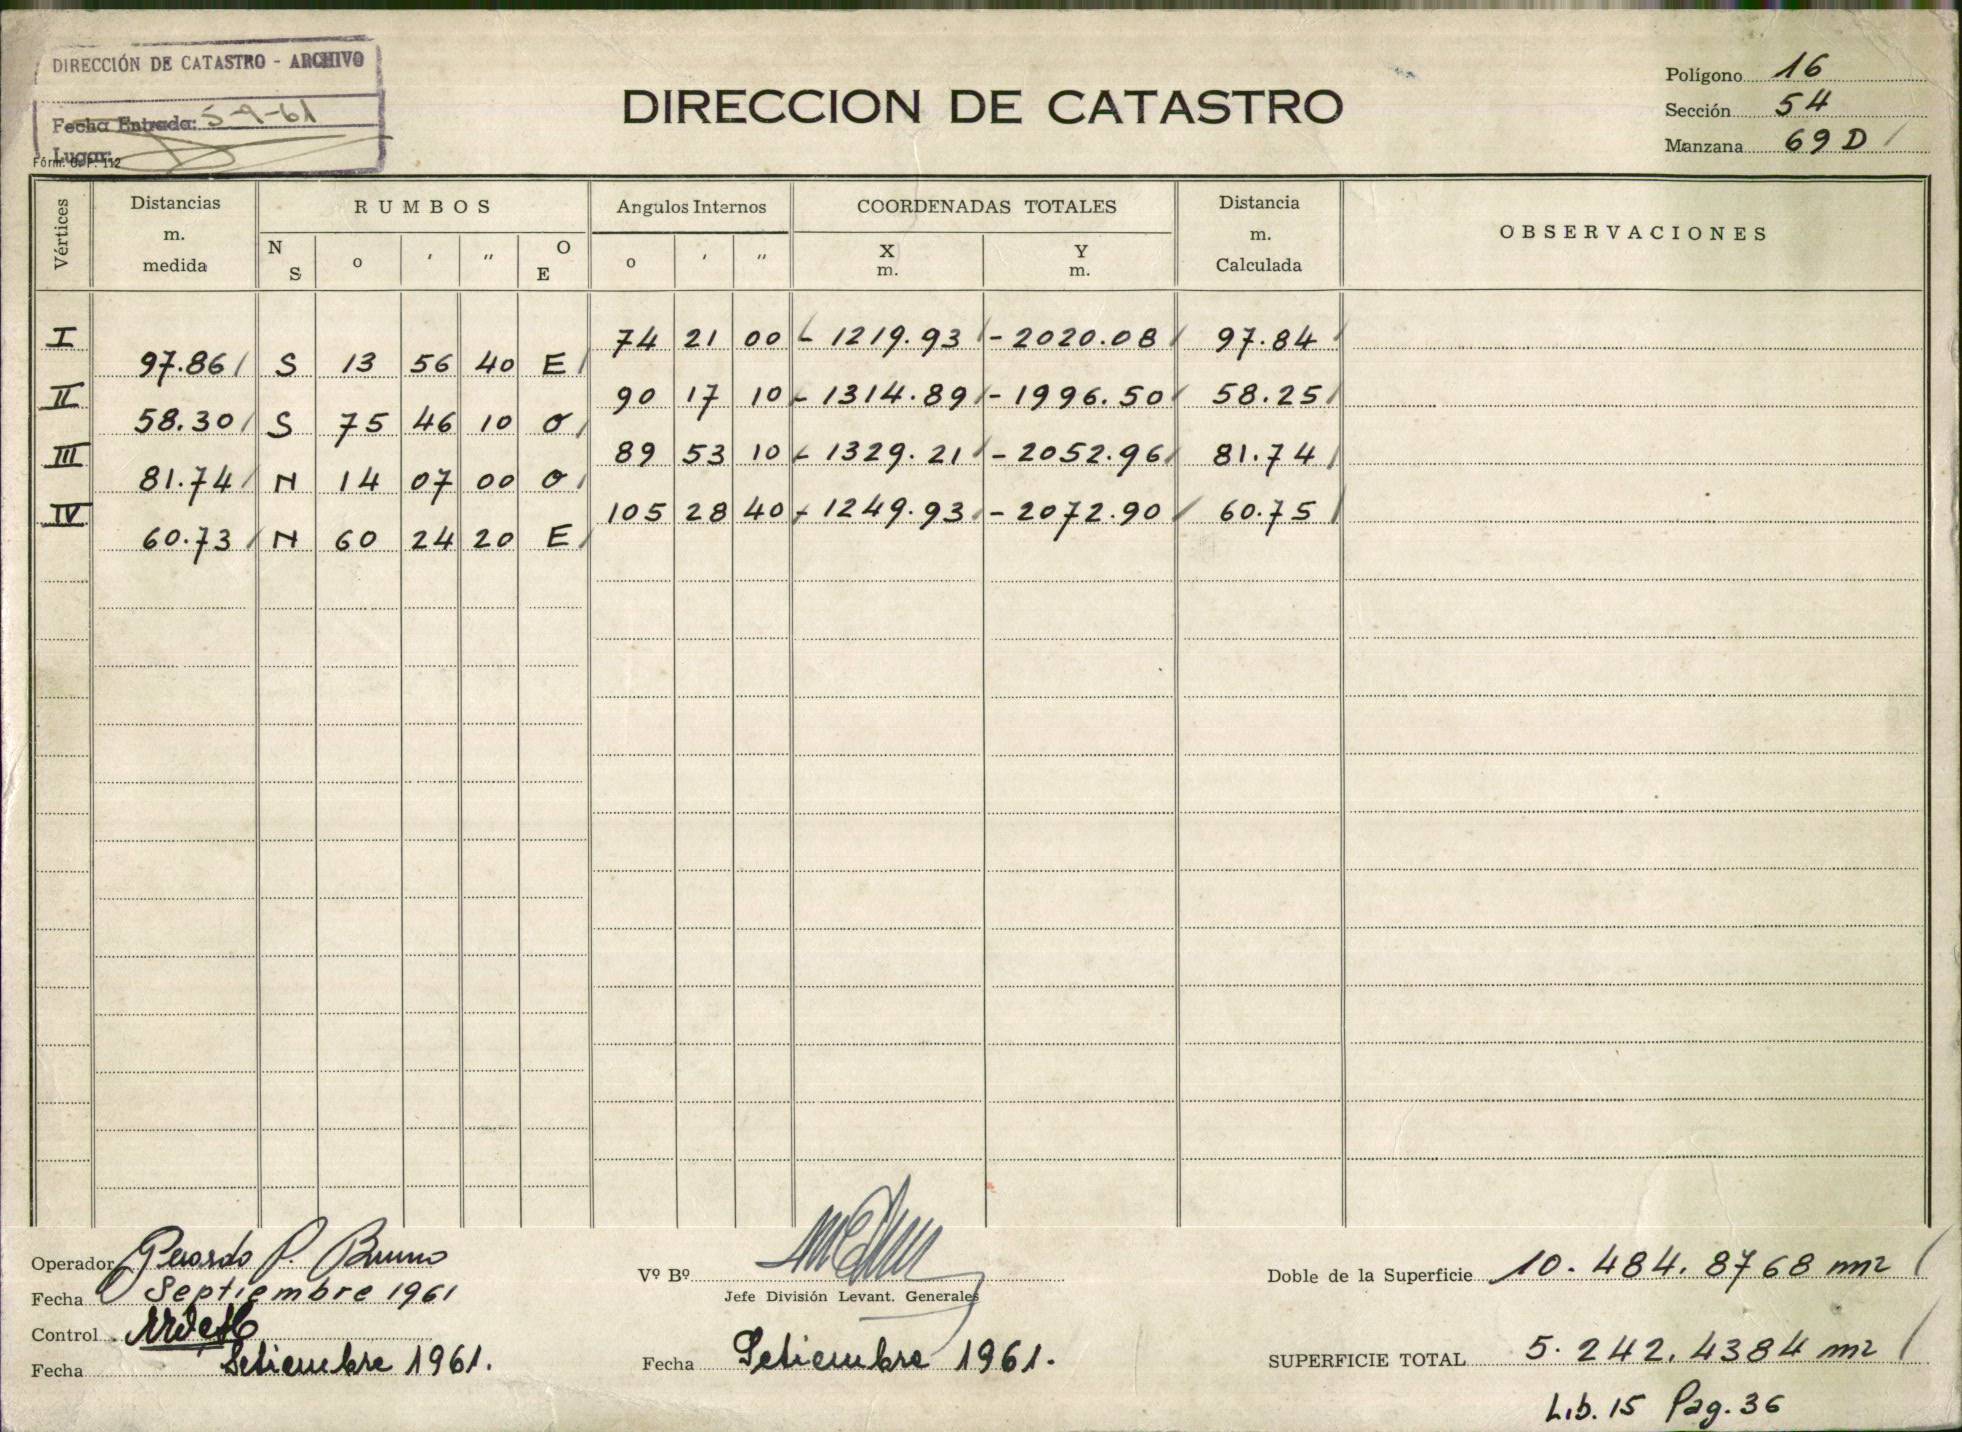 DIRECCIÓN DE CATASTRO - ARCHIVO
Fecha Entrada: 5-9-61
Lugar:
Fórm. G. P. 112
DIRECCION DE CATASTRO
Polígono 16
Sección 54
Manzana 69 D
Vértices
Distancias m. medida
RUMBOS
N S
o
'
"
O E
Angulos Internos
o
'
"
COORDENADAS TOTALES
X m.
Y m.
Distancia m. Calculada
OBSERVACIONES
I 74 21 00 - 1219.93 - 2020.08 97.84
97.86 S 13 56 40 E
II 90 17 10 - 1314.89 - 1996.50 58.25
58.30 S 75 46 10 O
III 89 53 10 - 1329.21 - 2052.96 81.74
81.74 N 14 07 00 O
IV 105 28 40 - 1249.93 - 2072.90 60.75
60.73 N 60 24 20 E
Operador Gerardo P. Bruno
Fecha Septiembre 1961
Control
Fecha Setiembre 1961.
Vº Bº
Jefe División Levant. Generales
Fecha Setiembre 1961.
Doble de la Superficie 10.484.8768 m2
SUPERFICIE TOTAL 5.242.4384 m2
Lib. 15 Pag. 36